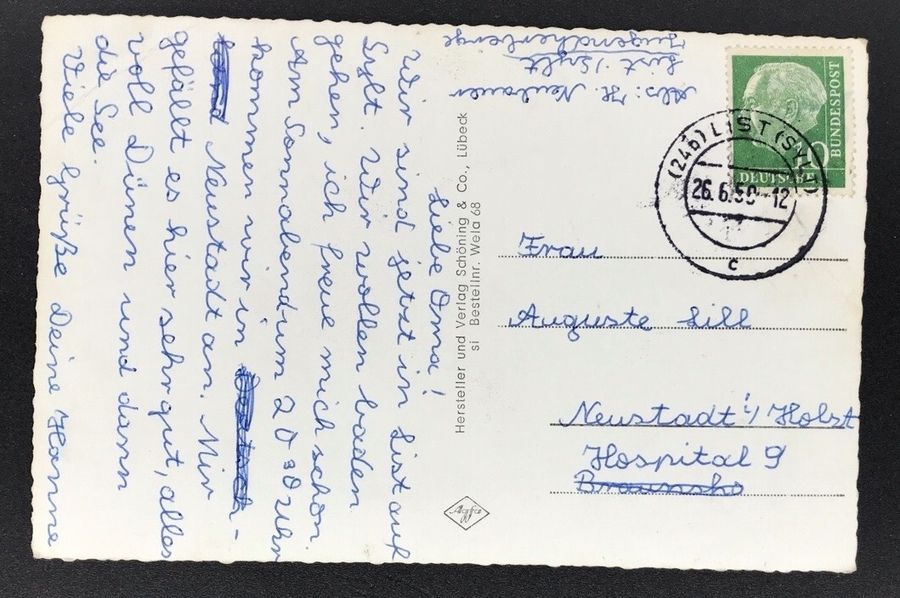 Liebe Oma!
Wir sind jetzt in List auf
Sylt. Wir wollen baden
gehen, ich freue mich schon.
Am Sonnabend um 20 30 Uhr
kommen wir in
Neustadt an. Mir
gefällt es hier sehr gut, alles
voll Dünen und dann
die See.
Viele Grüße Deine Hanne
Hersteller und Verlag Schöning & Co., Lübeck
si Bestellnr. Wela 68
Agfa
Abs: H. Neubauer
List / Sylt
Jugendherberge
DEUTSCHE
BUNDESPOST
(24b) LIST (SYLT)
26.6.58-12
c
Frau
Auguste Lill
Neustadt i/ Holst
Hospital 9
Braunsho